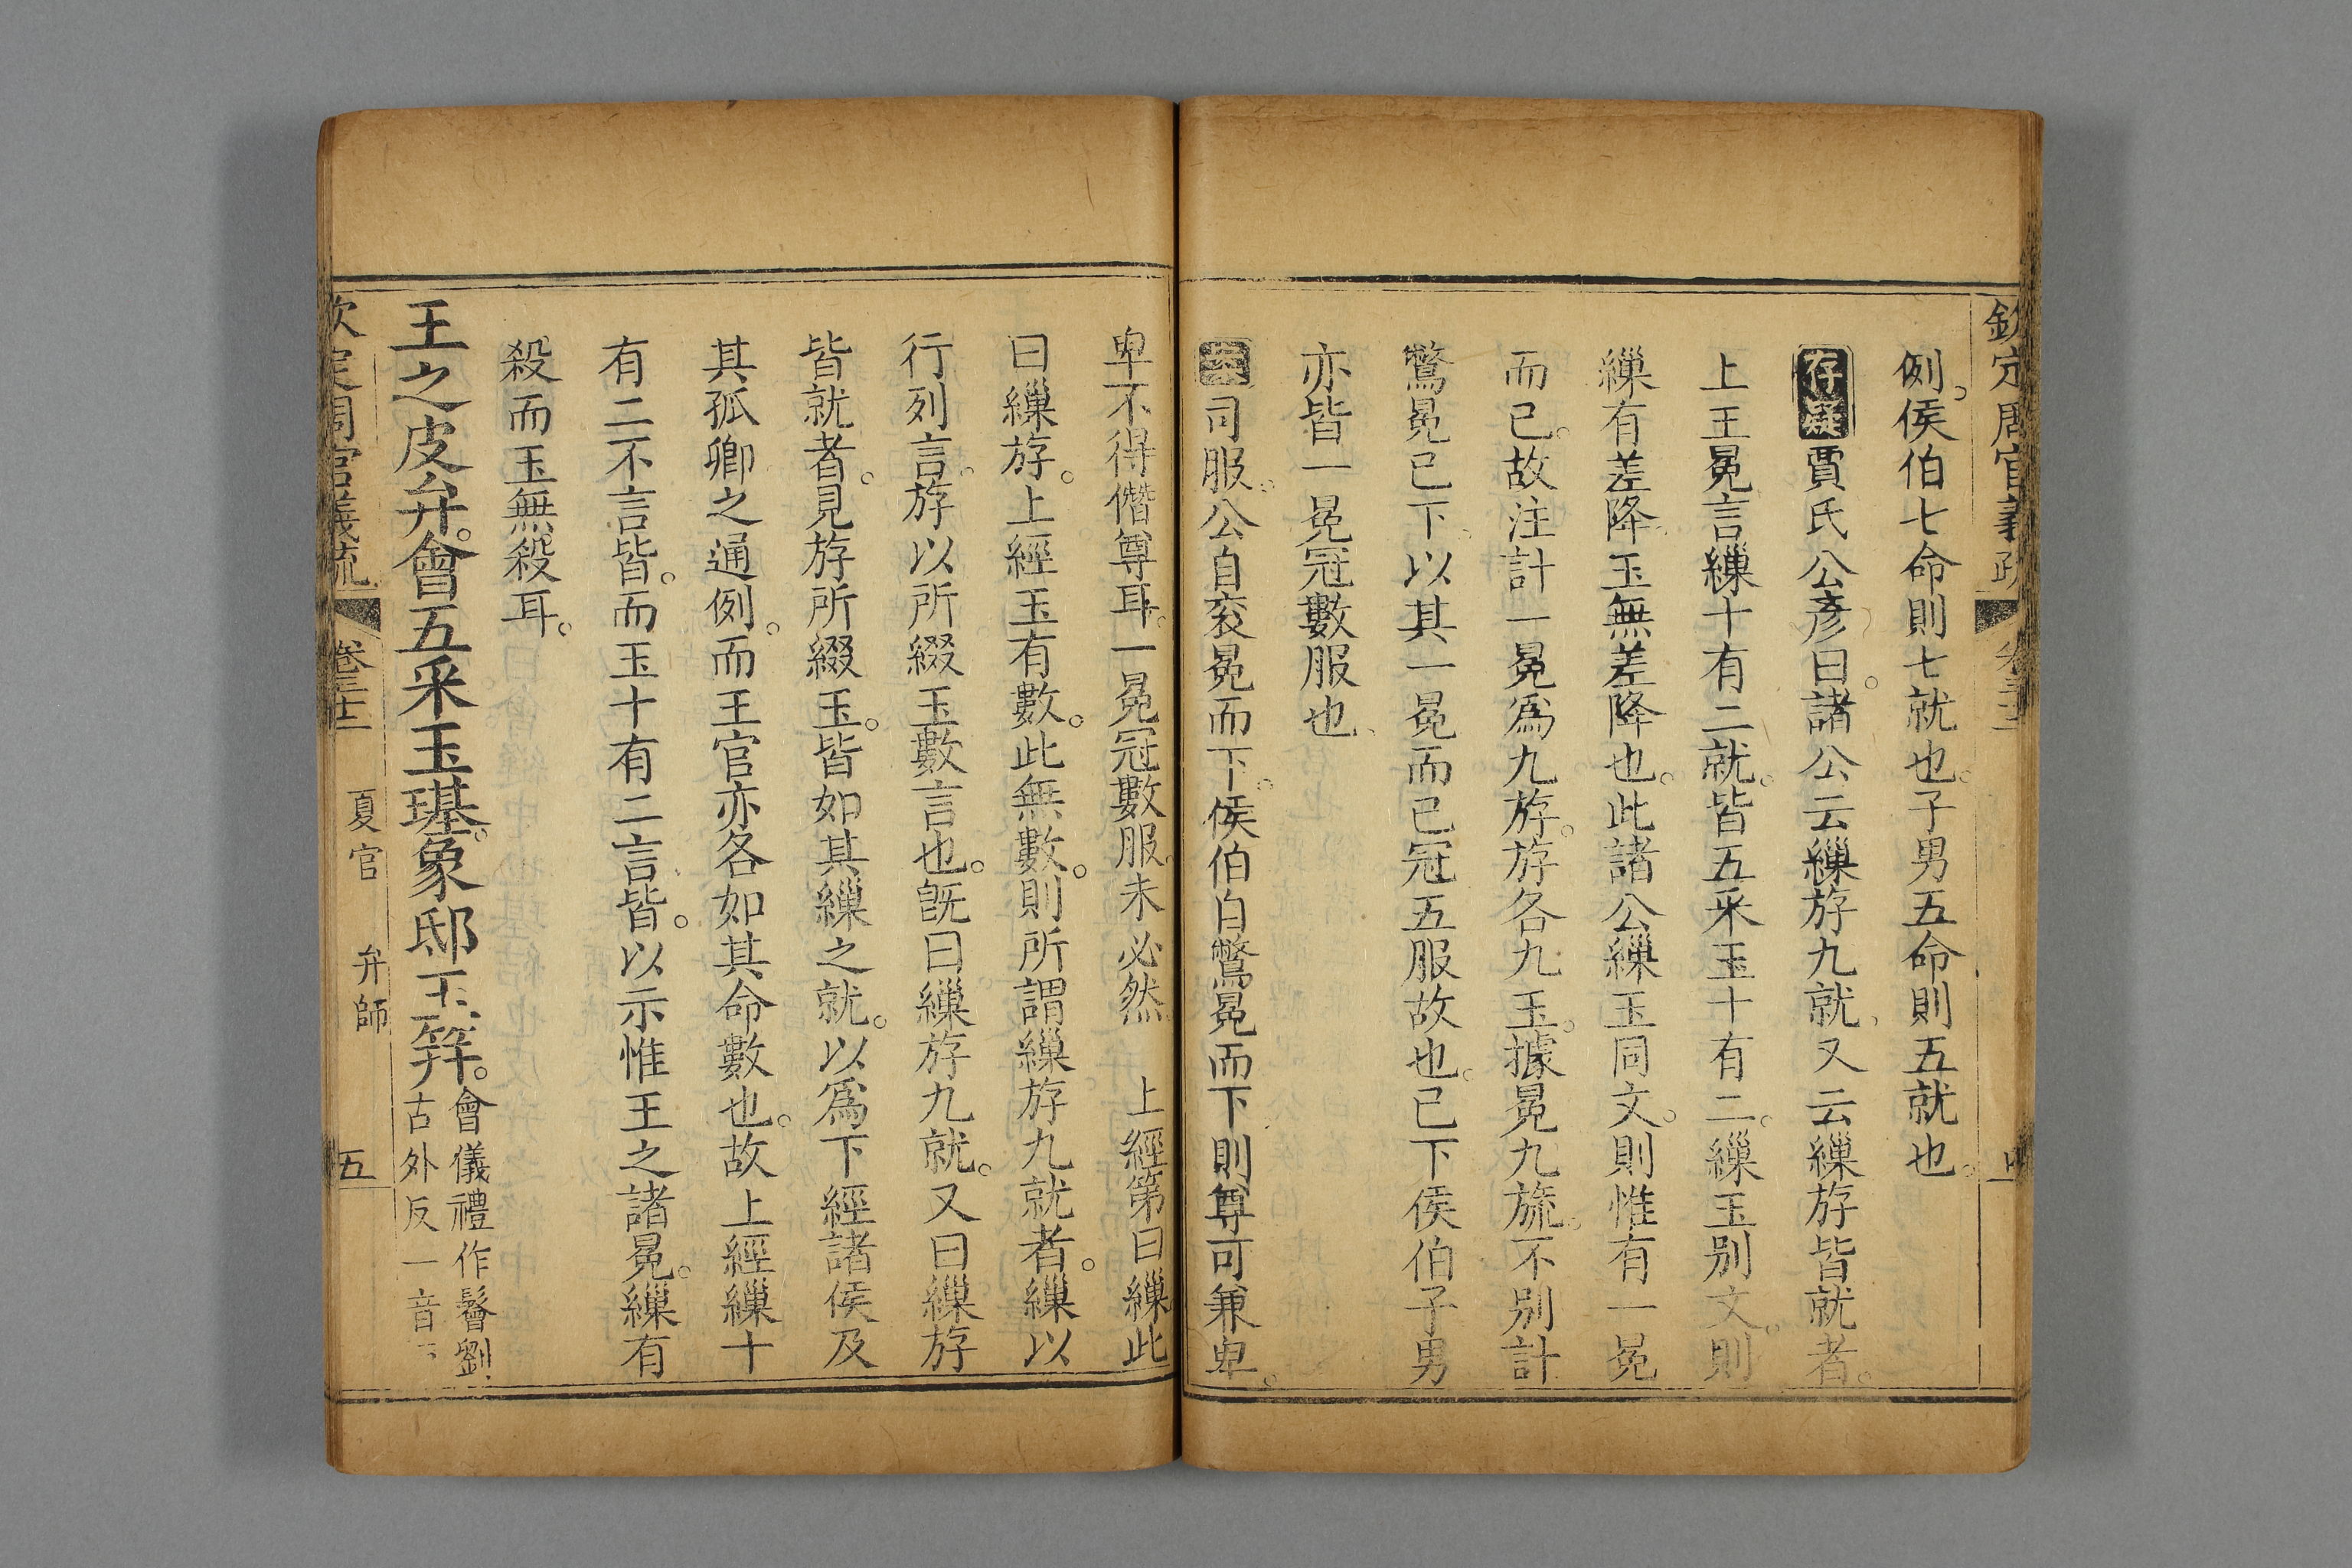 欽定周官義疏 卷三十二 四
例。侯伯七命則七就也。子男五命則五就也。
存疑 賈氏公彥曰。諸公云繅斿九就。又云繅斿皆就者。
上王冕言繅十有二就。皆五采玉十有二。繅玉別文。則
繅有差降。玉無差降也。此諸公繅玉同文。則惟有一冕
而已。故注計一冕爲九斿。斿各九玉。據冕九旒。不別計
鷩冕已下。以其一冕而已。冠五服故也。已下侯伯子男
亦皆一冕冠數服也。
案 司服。公自衮冕而下。侯伯自鷩冕而下。則尊可兼卑。
卑不得僭尊耳。一冕冠數服。未必然。 上經第曰繅。此
曰繅斿。上經玉有數。此無數。則所謂繅斿九就者。繅以
行列言。斿以所綴玉數言也。旣曰繅斿九就。又曰繅斿
皆就者。見斿所綴玉。皆如其繅之就。以爲下經諸侯及
其孤卿之通例。而王官亦各如其命數也。故上經繅十
有二不言皆。而玉十有二言皆。以示惟王之諸冕。繅有
殺而玉無殺耳。
王之皮弁。會五采玉璂。象邸玉笄。會儀禮作鬠劉
古外反一音
欽定周官義疏 卷三十二 夏官 弁師 五